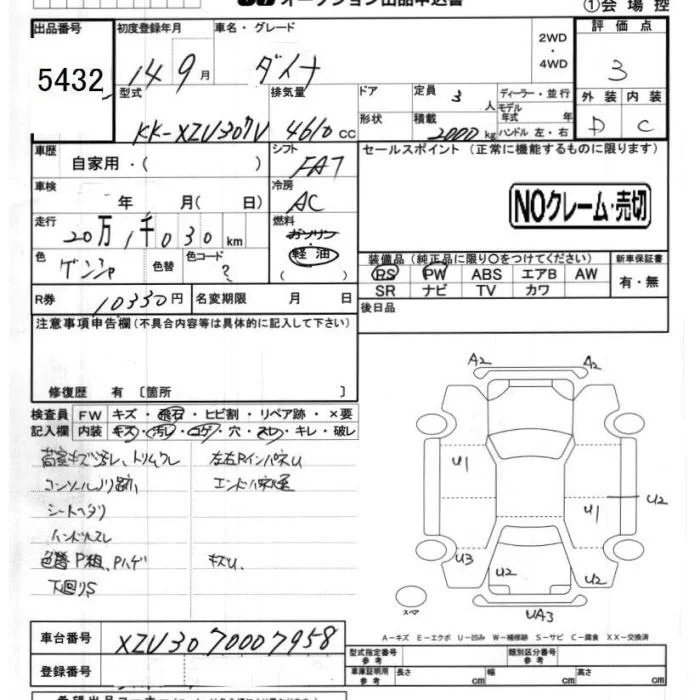 オークション出品申込書
①会場控
出品番号 初度登録年月 車名・グレード 2WD・4WD 評価点
5432 14 9月 ダイナ 3
型式 排気量 ドア 定員 3人 ディーラー・並行 外装 内装
KK-XZU307V 4610 cc 形状 積載 2000 kg モデル年式 年 ハンドル 左・右 D C
車歴 自家用・( ) シフト FAT セールスポイント(正常に機能するものに限ります)
車検 年 月( 日) 冷房 AC
NOクレーム・売切
走行 20万1千030km 燃料 ガソリン 軽油 ( )
色 ゲンシャ 色替 色コード ?
装備品(純正品に限り○をつけてください) 新車保証書
PS PW ABS エアB AW 有・無
SR ナビ TV カワ
R券 10330円 名変期限 月 日 後日品
注意事項申告欄(不具合内容等は具体的に記入して下さい)
修復歴 有〔箇所 〕
検査員 FW キズ・飛石・ヒビ割・リペア跡・×要
記入欄 内装 キズ・汚レ・コゲ・穴・スレ・キレ・破レ
荷室キズ汚レ、トリムワレ 左右RインパネU
コンソールノリ跡、
シートヘタリ
ハンドルスレ
色替P粗、Pハゲ キズU、
下回りS
A2 A2
U1 U2
U1
U3 U2 U2
スペア UA3
A－キズ E－エクボ U－凹み W－補修跡 S－サビ C－腐食 XX－交換済
車台番号 XZU307-0007958
型式指定番号 参考 類別区分番号 参考
登録番号 車庫証明用 参考 長さ cm 幅 cm 高さ cm